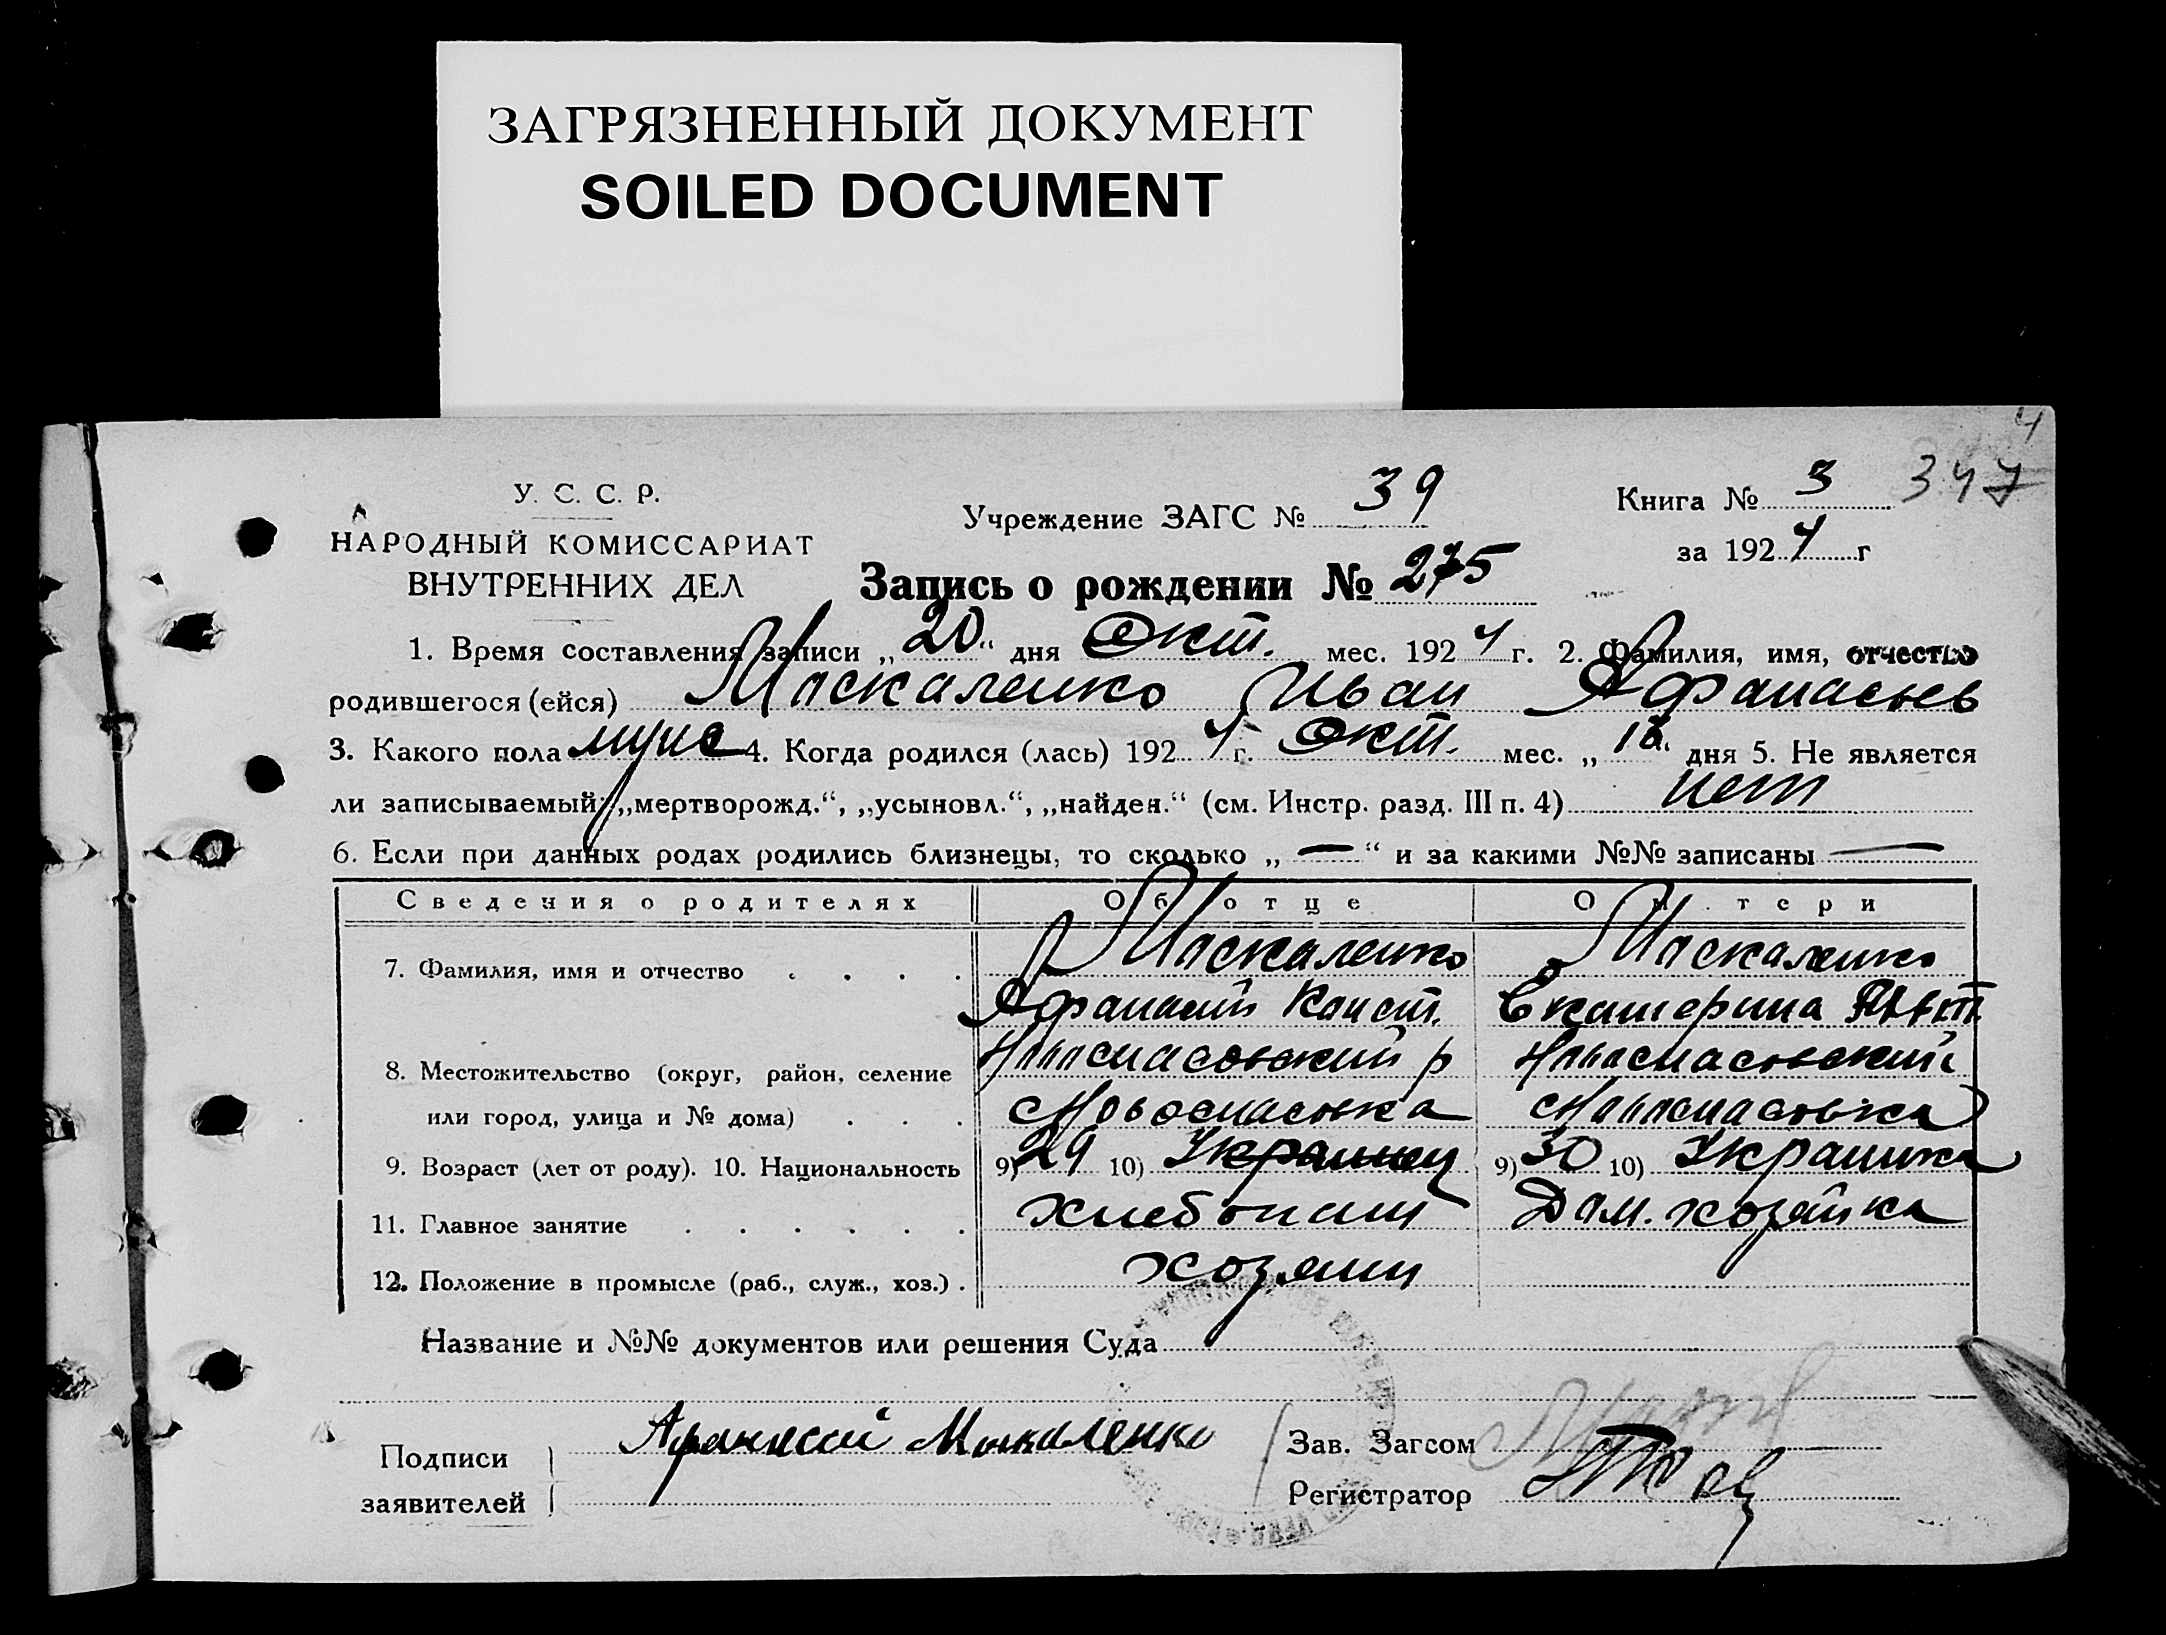 ЗАГРЯЗНЕННЫЙ ДОКУМЕНТ
SOILED DOCUMENT
4
У. С. С. Р.
НАРОДНЫЙ КОМИССАРИАТ
ВНУТРЕННИХ ДЕЛ
Учреждение ЗАГС № 39
Книга № 3 347
за 1924 г
Запись о рождении № 275
1. Время составления записи „20“ дня Окт. мес. 1924 г. 2. Фамилия, имя, отчество
родившегося (ейся) Маскаленко Иван Афанасьев
3. Какого пола муж 4. Когда родился (лась) 1924 г. Окт. мес. „ дня 5. Не является
ли записываемый: „мертворожд.“, „усыновл.“, „найден.“ (см. Инстр. разд. III п. 4) нет
6. Если при данных родах родились близнецы, то сколько „—“ и за какими №№ записаны —
Сведения о родителях Об отце О матери
7. Фамилия, имя и отчество . . . . Маскаленко Маскаленко
Афанасий Конст. Екатерина
8. Местожительство (округ, район, селение Новоспасовский р Новоспасовский
или город, улица и № дома) . . . с Новоспасовка с Новоспасовка
9. Возраст (лет от роду). 10. Национальность 9) 29 10) Украинец 9) 30 10) Украинка
11. Главное занятие . . . . . . хлебопашец Дом. хозяйка
12. Положение в промысле (раб., служ., хоз.) . хозяин
Название и №№ документов или решения Суда
Подписи
заявителей
Афанасий Маскаленко
Зав. Загсом
Регистратор